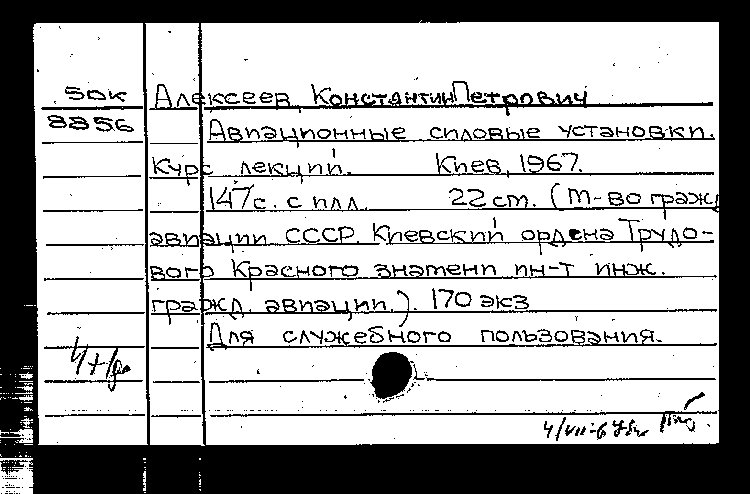 50К Алексеев, Константин Петрович
8856 Авиационные силовые установки.
Курс лекций. Киев, 1967.
147с. с илл. 22 cm. (М-во гражд
авиации СССР. Киевский ордена Трудо-
вого Красного знамени ин-т инж.
гражд. авиации.). 170 экз
Для служебного пользования.